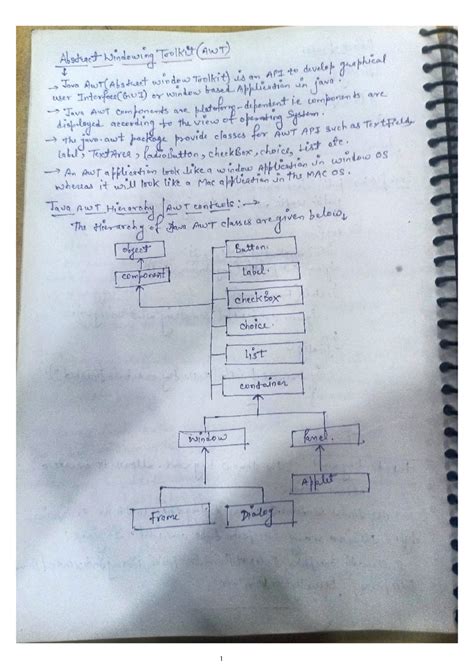 Abstract Windowing Toolkit (AWT)
→ Java AWT (Abstract window Toolkit) is an API to develop graphical
user Interface (GUI) or window based Application in java.
→ Java AWT components are platform-dependent i.e components are
displayed according to the view of operating System.
→ The java.awt package provide classes for AWT API such as TextField,
label, TextArea, RadioButton, checkBox, choice, List etc.
→ An AWT application look like a window Application in window OS
whereas it will look like a Mac application in the MAC OS.
Java AWT Hierarchy / AWT controls :→
The Hierarchy of Java AWT classes are given below,
object
Button.
component
Label.
checkBox
choice.
List
container
window
Panel.
Applet
Frame
Dialog
1